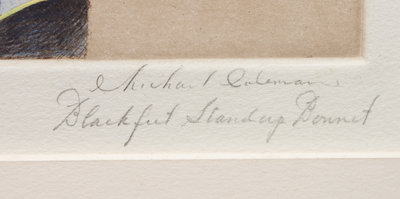 Michael Coleman
Blackfeet Standup Bonnet